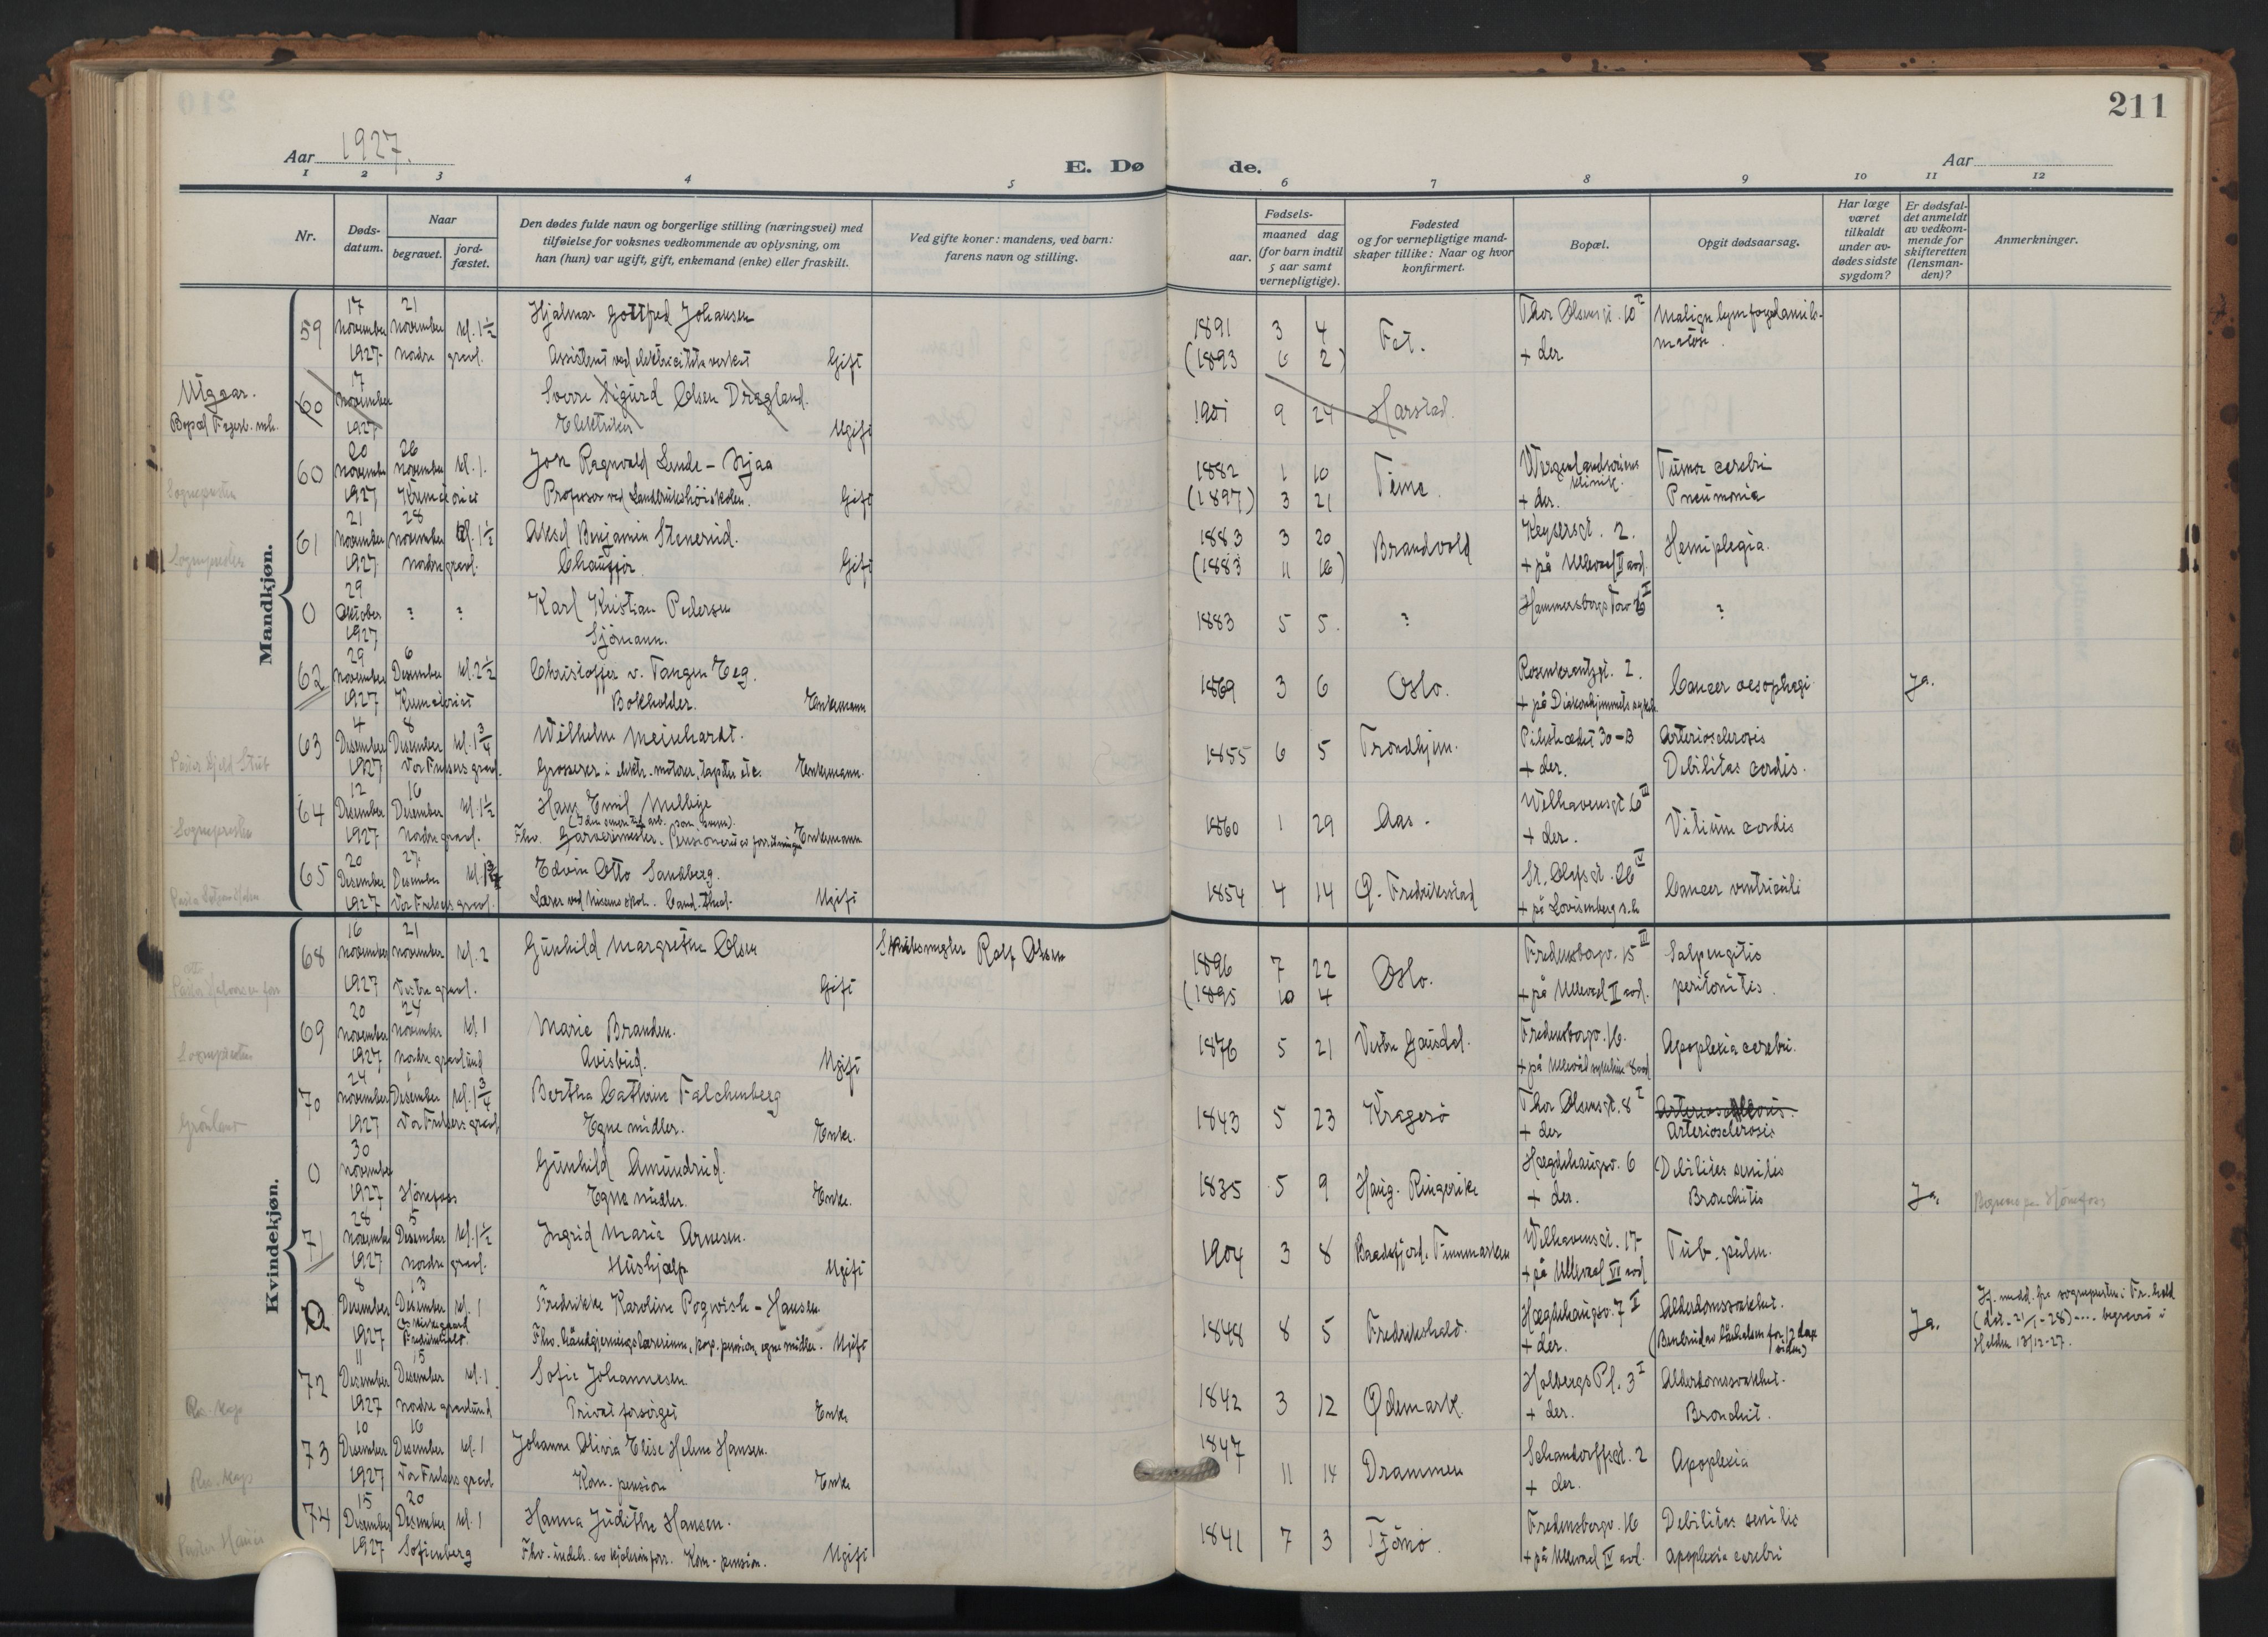 211
Aar 1927.
E. Dø de.
Aar
1 2 3 4 5 6 7 8 9 10 11 12
Nr.
Døds-
datum.
Naar
begravet.
jord-
fæstet.
Den dødes fulde navn og borgerlige stilling (næringsvei) med
tilføielse for voksnes vedkommende av oplysning, om
han (hun) var ugift, gift, enkemand (enke) eller fraskilt.
Ved gifte koner: mandens, ved barn:
farens navn og stilling.
Fødsels-
aar.
maaned dag
(for barn indtil
5 aar samt
vernepligtige).
Fødested
og for vernepligtige mand-
skaper tillike: Naar og hvor
konfirmert.
Bopæl.
Opgit dødsaarsag.
Har læge
været
tilkaldt
under av-
dødes sidste
sygdom?
Er dødsfal-
det anmeldt
av vedkom-
mende for
skifteretten
(lensman-
den)?
Anmerkninger.
Mandkjøn.
17 21 Hjalmar Gottfred Johansen Thor Olsens gt. 10 I Malign
59 november november kl. 1½ 1891 3 4 Fet.
1927 nordre gravl. Assistent ved elektricitetsverket Gift (1893 6 2) + der
Utgaar. 17 Sverre Sigurd Olsen Dragland.
60 november 1901 9 24 Harstad.
Bopæl 1927 Elektriker Ugift
20 26 Jon Ragnvald Lende-Njaa klinik. Tumor cerebri
60 november november kl. 1. 1882 1 10 Time.
Sognepresten 1927 Krematoriet Professor ved Landbrukshöiskolen. Gift (1897) 3 21 + der. Pneumonia
21 28 Aksel Benjamin Stenerud. Keysersgt. 2.
61 november november kl. 1½ 1883 3 20 Brandvold Hemiplegia.
Sognepresten 1927 nordre gravl. Chauffør. Gift (1883 11 16) + på Ullevaal II avd.
29 Karl Kristian Pedersen Hammersborgs Torv
0 Oktober ? ? 1883 5 5. ? ?
1927 Sjömann.
29 6 Christoffer v. Tangen Eeg. Rosenkrantzgt. 2.
62 november Desember kl. 2½ 1869 3 6 Oslo. Cancer oesophagi Ja.
1927 Krematoriet Bokholder. Enkemann + på Diakonhjemmets sykeh.
4 8 Wilhelm Meinhardt. Pilestrædet 30-B Arteriosclerosis
63 Desember Desember kl. 1¾ 1855 6 5 Trondhjem.
1927 Vor Frelsers gravl. Grosserer i elektr. motorer, etc. Enkemann. + der. Debilitas cordis.
12 16 Hans Emil Mellbye Welhavensgt. 6 III
64 Desember Desember kl. 1½ 1860 1 29 Aas. Vitium cordis
Sognepresten 1927 Nordre gravl. Fhv. Garvermester. Enkemann + der.
20 27 Edvin Otto Sandberg. St. Olafsgt. 26 IV
65 Desember Desember 1854 4 14 Cancer ventriculi
1927 Vor Frelsers gravl. Cand. theol. Ugift + på Lovisenberg
Kvindekjøn.
16 21 Gunhild Margrethe Olsen Skibsmegler Rolf Olsen Fredensborgv. 15 III Salpengitis
68 november november kl. 2 1896 7 22 Oslo.
1927 Vestre gravl. Gift (1895 10 4 + på Ullevaal II avd. peritonitis.
20 24 Marie Branden. Fredensborgv. 16.
69 november november kl. 1 1876 5 21 Vestre Gausdal. Apoplexia cerebri.
Sognepresten 1927 nordre gravlund Avisbud. Ugift
24 1 Bertha Cathrine Falchenberg Thor Olsensgt. 8 I
70 november Desember kl. 1¾ 1843 5 23 Kragerö
Grönland 1927 Vor Frelsers gravl. Egne midler. Enke. + der Arteriosclerosis
30 Gunhild Amundrud. Hægdehaugsv. 6 Debilitas senilis
0 november 1835 5 9 Haug. Ringerike
1927 Hönefoss Egne midler. Enke. + der. Bronchitis Ja.
28 5 Ingrid Marie Arnesen. Welhavensgt. 17
71 november Desember kl. 1½ 1904 3 8 Baadsfjord, Finnmarken Tub. pulm.
1927 nordre gravl. Hushjælp Ugift + på Ullevaal VI avd
8 13 Fredrikke Karoline Pogwish-Hansen Hægdehaugsv. 7 I Alderdomssvakhet.
0 Desember Desember kl. 1 1848 8 5 Fredrikshald. Ja.
1927 Fhv. håndgjerningslærerinne, pension, egne midler. Ugift + der. (Benbrudd for 12 dage siden)
Ifl. medd. fra sognepresten i Fr.hald
(dat. 21/1-28) ... begravet i
Halden 13/12-27.
11 15 Sofie Johannesen Holbergs Pl. 3 I Alderdomssvakhet.
72 Desember Desember kl. 1 1842 3 12 Ødemark.
1927 Nordre gravlund Privat forsörget Enke + der. Bronchit.
10 16 Johanne Olivia Elise Helene Hansen. Schandorffsgt. 2
73 Desember Desember kl. 1 1847 11 14 Drammen Apoplexia
1927 Vor Frelsers gravl. Kom. pension Enke + der.
15 20 Hanna Judithe Hansen. Fredensborgv. 16 Debilitas senilis
74 Desember Desember kl. 1 1841 7 3 Tjömö.
1927 Sofienberg Kom. pension. Ugift + på Ullevaal IV avd. apoplexia cerebri